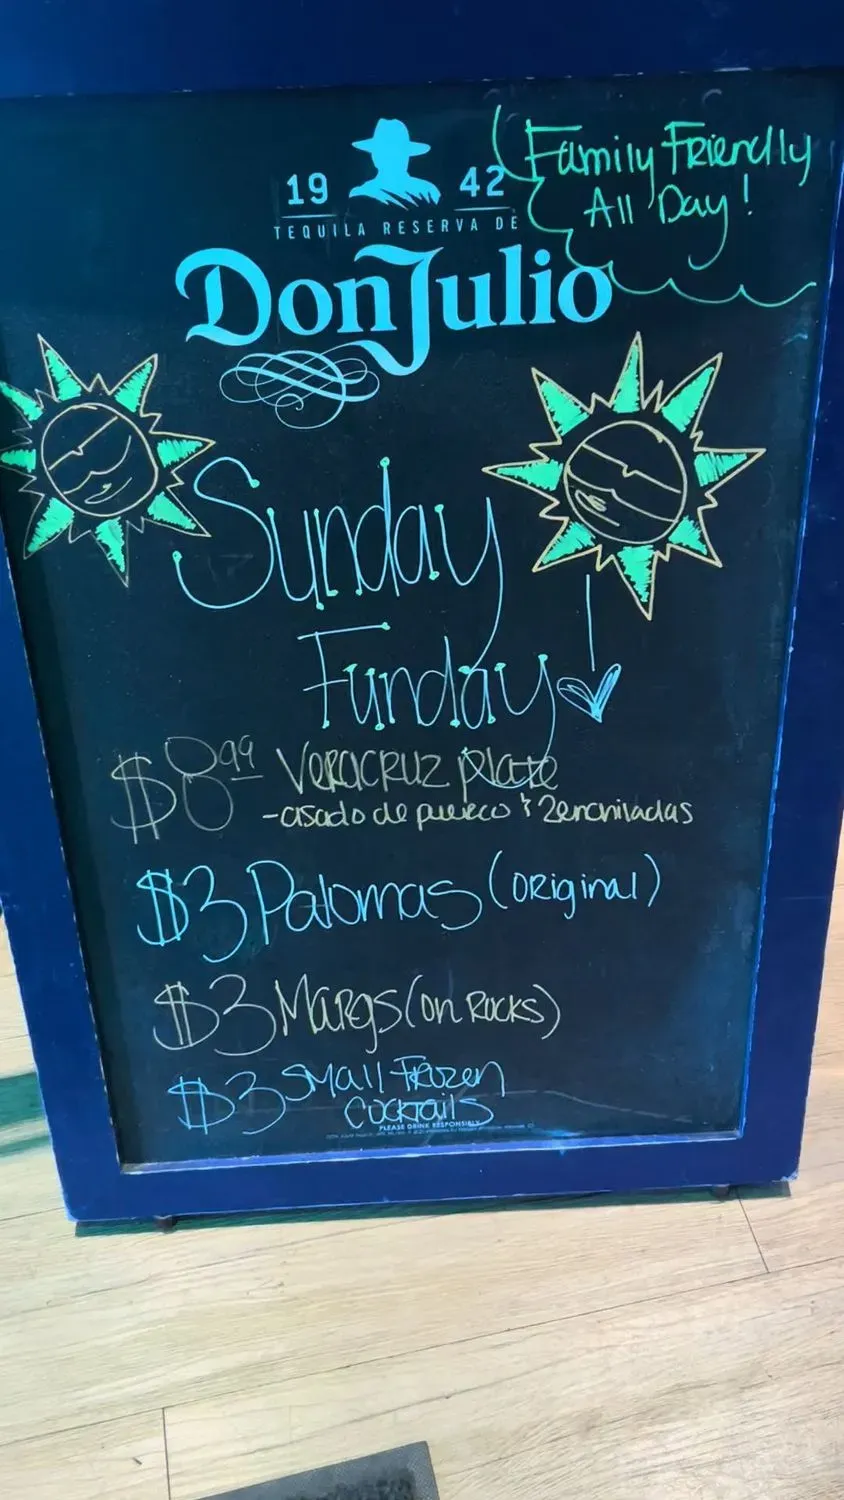 19 42
TEQUILA RESERVA DE
Don Julio
Family Friendly
All Day!
Sunday
Funday
$8.99 Veracruz plate
-asado de puerco & 2 enchiladas
$3 Palomas (original)
$3 Margs (on Rocks)
$3 Small Frozen
Cocktails
PLEASE DRINK RESPONSIBLY.